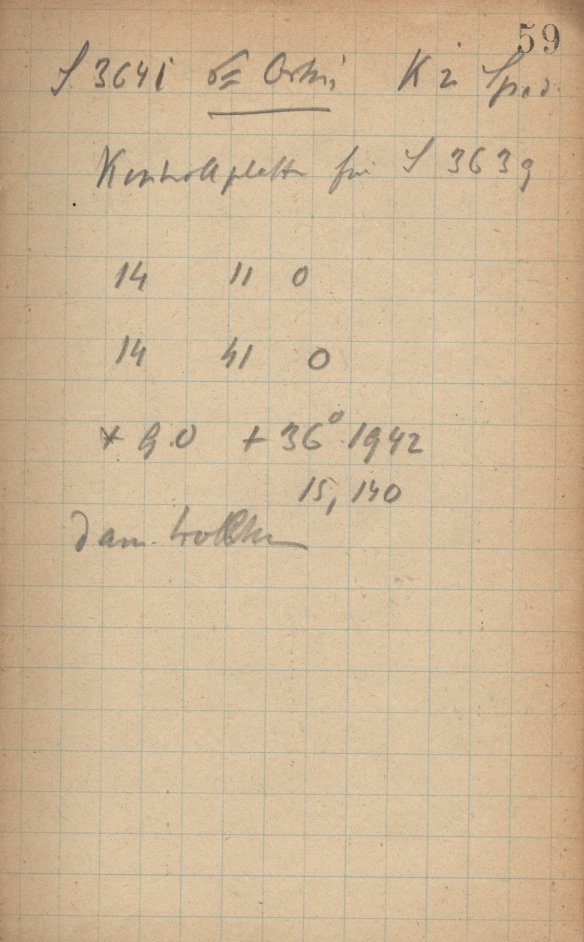 59
S 3641 Kż Sp
Kontrollplatte für S 3639
14 11 0
14 41 0
* 9.0 + 36° 1942
15, 140
dann Wolken